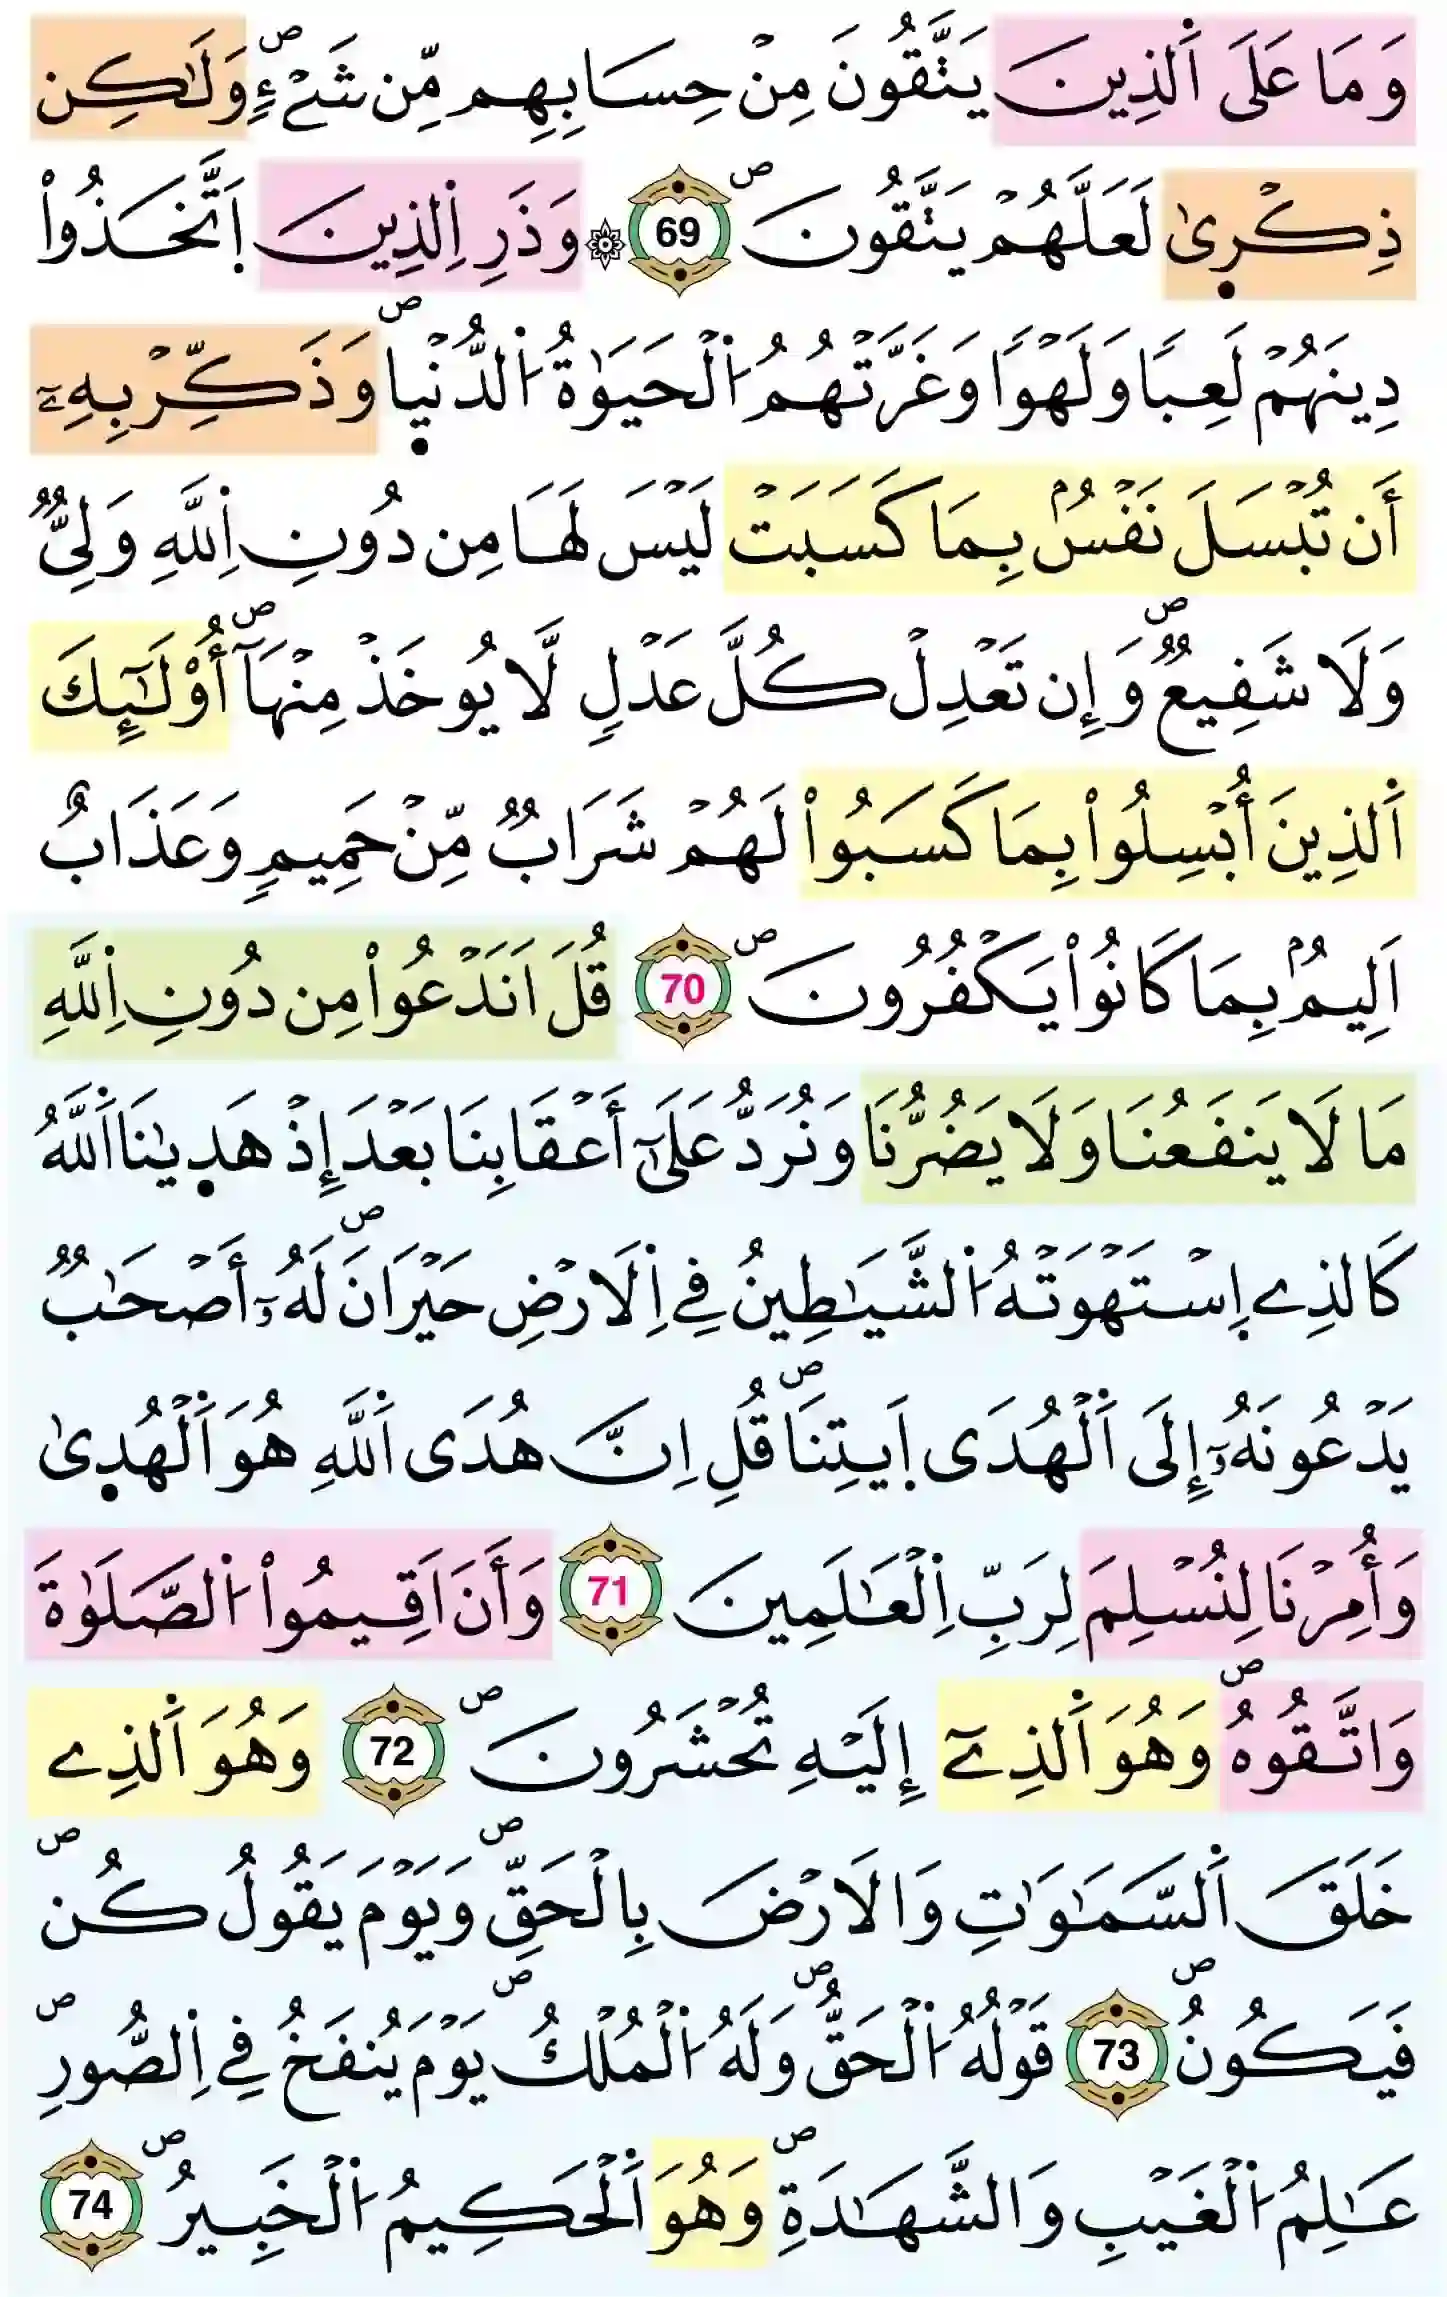 وَمَا عَلَى اَ۬لذِينَ يَتَّقُونَ مِنْ حِسَابِهِم مِّن شَےْءٖۖ وَلَٰكِن
ذِكْر۪يٰ لَعَلَّهُمْ يَتَّقُونَۖ 69 ۞ وَذَرِ اِ۬لذِينَ اَ۪تَّخَذُواْ
دِينَهُمْ لَعِباٗ وَلَهْواٗ وَغَرَّتْهُمُ اُ۬لْحَيَوٰةُ اُ۬لدُّنْي۪اۖ وَذَكِّرْ بِهِۦٓ
أَن تُبْسَلَ نَفْسُۢ بِمَا كَسَبَتْ لَيْسَ لَهَا مِن دُونِ اِ۬للَّهِ وَلِيّٞ
وَلَا شَفِيعٞۖ وَإِن تَعْدِلْ كُلَّ عَدْلٖ لَّا يُوخَذْ مِنْهَآۖ أُوْلَٰٓئِكَ
اَ۬لذِينَ أُبْسِلُواْ بِمَا كَسَبُواْ لَهُمْ شَرَابٞ مِّنْ حَمِيمٖ وَعَذَابٌ
اَلِيمُۢ بِمَا كَانُواْ يَكْفُرُونَۖ 70 قُلَ اَنَدْعُواْ مِن دُونِ اِ۬للَّهِ
مَا لَا يَنفَعُنَا وَلَا يَضُرُّنَا وَنُرَدُّ عَلَىٰٓ أَعْقَابِنَا بَعْدَ إِذْ هَد۪يٰنَا اَ۬للَّهُ
كَالذِے اِ۪سْتَهْوَتْهُ اُ۬لشَّيَٰطِينُ فِے اِ۬لَارْضِ حَيْرَانَۖ لَهُۥٓ أَصْحَٰبٞ
يَدْعُونَهُۥٓ إِلَى اَ۬لْهُدَى اَ۪يتِنَاۖ قُلِ اِنَّ هُدَى اَ۬للَّهِ هُوَ اَ۬لْهُد۪يٰ
وَأُمِرْنَا لِنُسْلِمَ لِرَبِّ اِ۬لْعَٰلَمِينَ 71 وَأَنَ اَقِيمُواْ اُ۬لصَّلَوٰةَ
وَاتَّقُوهُۖ وَهُوَ اَ۬لذِےٓ إِلَيْهِ تُحْشَرُونَۖ 72 وَهُوَ اَ۬لذِے
خَلَقَ اَ۬لسَّمَٰوَٰتِ وَالَارْضَ بِالْحَقِّۖ وَيَوْمَ يَقُولُ كُنۖ
فَيَكُونُۖ 73 قَوْلُهُ اُ۬لْحَقُّۖ وَلَهُ اُ۬لْمُلْكُۖ يَوْمَ يُنفَخُ فِے اِ۬لصُّورِۖ
عَٰلِمُ اُ۬لْغَيْبِ وَالشَّهَٰدَةِۖ وَهُوَ اَ۬لْحَكِيمُ اُ۬لْخَبِيرُۖ 74